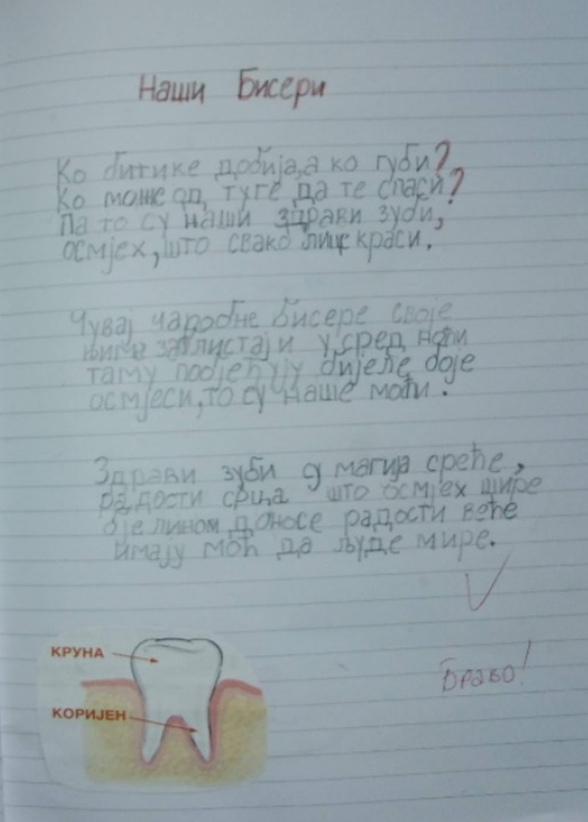 Наши Бисери
Ко битике добија,а ко губи?
Ко може од туге да те спаси?
Па то су наши здрави зуби,
осмјех,што свако лице краси.
Чувај чаробне бисере своје
њима заблистај и у сред ноћи
таму побјеђују бијеле боје
осмјеси,то су наше моћи.
Здрави зуби су магија среће,
радости срца што осмјех шире
бјелином доносе радости веће
имају моћ да људе мире.
Браво!
КРУНА
КОРИЈЕН